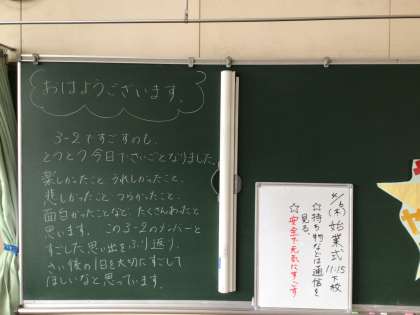 おはようございます。
3-2ですごすのも、
とうとう今日でさいごとなりました。
楽しかったこと、うれしかったこと、
悲しかったこと、つらかったこと、
面白かったことなど、たくさんあったと
思います。この3-2のメンバーと
すごした思い出をふり返り、
さい後の1日を大切にすごして
ほしいなと思っています。
4/6(木)始業式 11:15下校
☆持ち物などは通信を
見る。
☆安全で元気にすごす